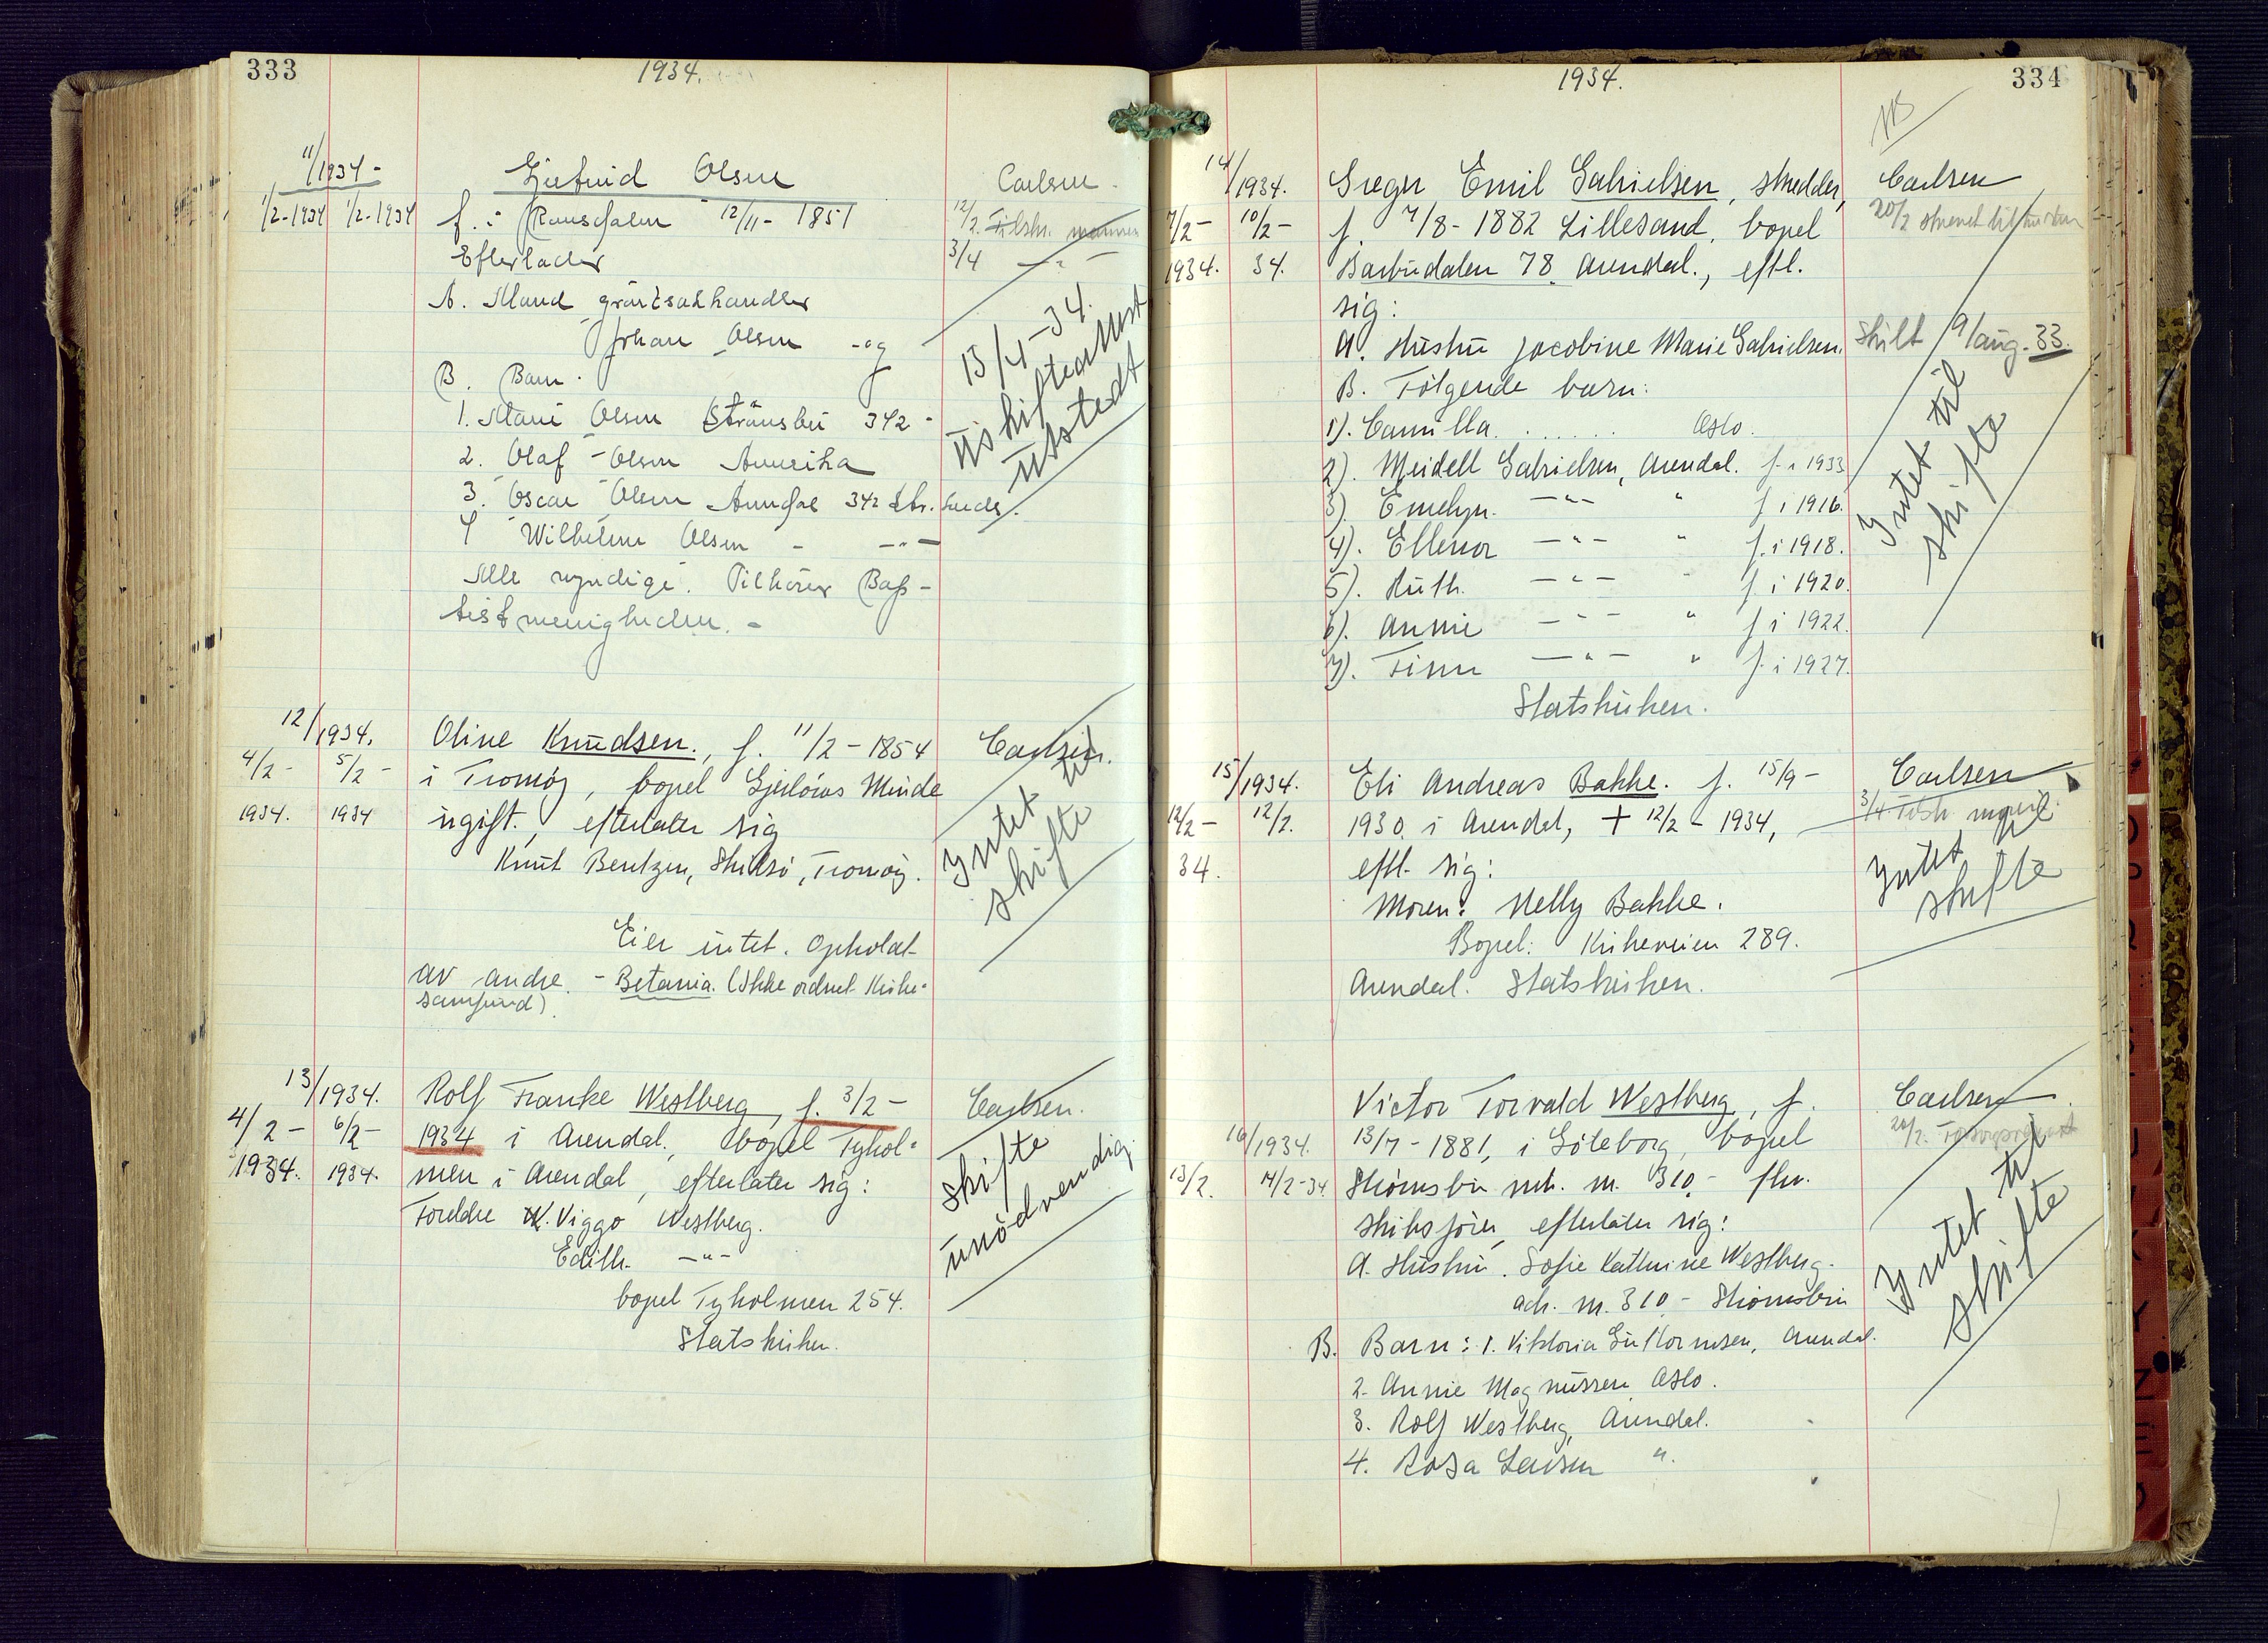 333
1934.
11/1934 -
1/2-1934 1/2-1934
Olsen
Carlsen.
f. i Ramsdalen 12/11- 1851
12/2. Tilskr. mannen
Efterlader
3/4 — " —
A. Mand grøntsakhandler
Johan Olsen - og
B. Barn.
1. Marie Olsen Strømsbu 342 -
2. Olaf Olsen Amerika
3. Oscar Olsen Arendal 342 Str.
4 Wilhelm Olsen - —"—
Alle myndige. Tilhører Bap-
tistmenigheden. -
13/4-34.
Uskifteattest
utstedt
12/1934.
4/2- 5/2-
1934. 1934
Oline Knudsen., f. 11/2 - 1854
i Tromøy, bopel Gjerløws Minde
ugift., efterlater sig
Knut Bentzen, Skilsø, Tromøy.
Eier intet. Opholdt
av andre. - Betania. (Ikke ordnet Kirke-
samfund).
Carlsen.
Intet til
skifte
13/1934.
4/2- 6/2-
1934. 1934.
Rolf Franke Westberg, f. 3/2 -
1934 i Arendal., bopel Tyhol-
men i Arendal, efterlater sig:
Foreldre K. Viggo Westberg.
Edith. —"—
bopel Tyholmen 254.
Statskirken.
Carlsen.
Skifte
unödvendig.
1934.
334
NB
14/1934.
7/2- 10/2-
1934. 34.
Gregor Emil Gabrielsen, skredder,
f. 7/8- 1882 Lillesand, bopel
Barbudalen 78. Arendal., eftl.
sig:
A. Hustru Jacobine Marie Gabrielsen.
B. Følgende barn:
1). Camilla. . . . . . . Oslo.
2). Meidell Gabrielsen, Arendal. f. i 1933
3). Emelyn. —"— " f i 1916.
4). Ellenor —"— " f. i 1918.
5). Ruth. —"— " f. i 1920.
6). Annie —"— " f i 1922.
7). Finn —"— " f. i 1927.
Statskirken.
Carlsen
20/2 skrevet til hustru
Skilt 9/aug. 33.
Intet til
skifte
15/1934.
12/2- 12/2.
34.
Eli Andreas Bakke. f. 15/9 -
1930. i Arendal, + 12/2 - 1934,
eftl. sig:
Moren: Nelly Bakke.
Bopel: Kirkeveien 289.
Arendal. Statskirken.
Carlsen
Intet til
skifte
16/1934.
13/2. 14/2-34.
Victor Torvald Westberg, f.
13/7 - 1881, i Göteborg, bopel
Strømsbu mtr. nr. 310.- fhv.
skibsfører, efterlater sig:
A. Hustru. Sofie Kathrine Westberg.
adr. nr. 310 - Strømsbu
B. Barn: 1. Viktoria Guttormsen, Arendal.
2. Annie Magnussen Oslo.
3. Rolf Westberg, Arendal.
4. Rosa Larsen ".
Carlsen.
Intet til
skifte